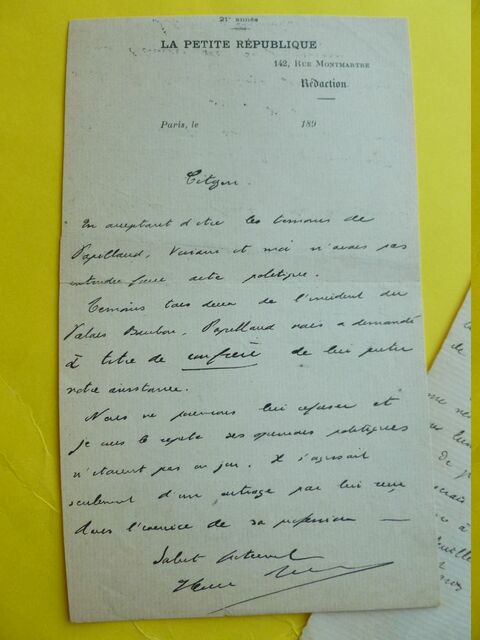 21e année
LA PETITE RÉPUBLIQUE
142, Rue Montmartre
Rédaction
Paris, le 189
Citoyen
En acceptant d'être les témoins de
Papillaud, et moi n'avons pas
entendu faire acte politique.
Témoins tous deux de l'incident du
Palais Bourbon, Papillaud nous a demandé
à titre de confrère de lui prêter
notre assistance.
Nous ne pouvions lui refuser et
je vous le répète ses opinions politiques
n'étaient pas en jeu. Il s'agissait
seulement d'un outrage par lui reçu
dans l'exercice de sa profession —
Salut fraternel